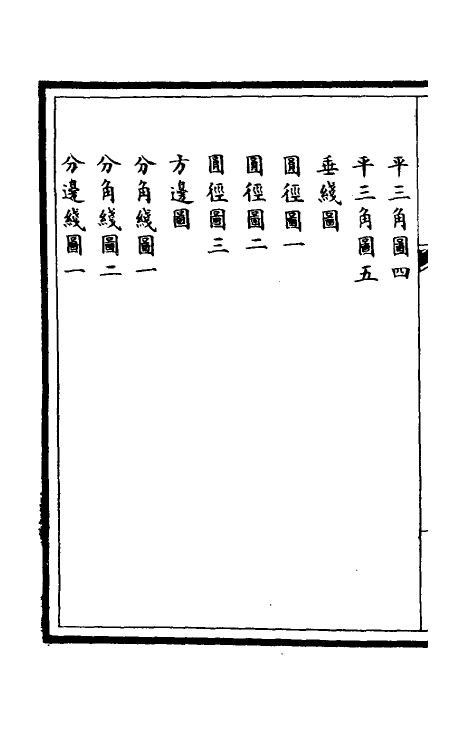 平三角圖四
平三角圖五
垂綫圖
圓徑圖一
圓徑圖二
圓徑圖三
方邊圖
分角綫圖一
分角綫圖二
分邊綫圖一